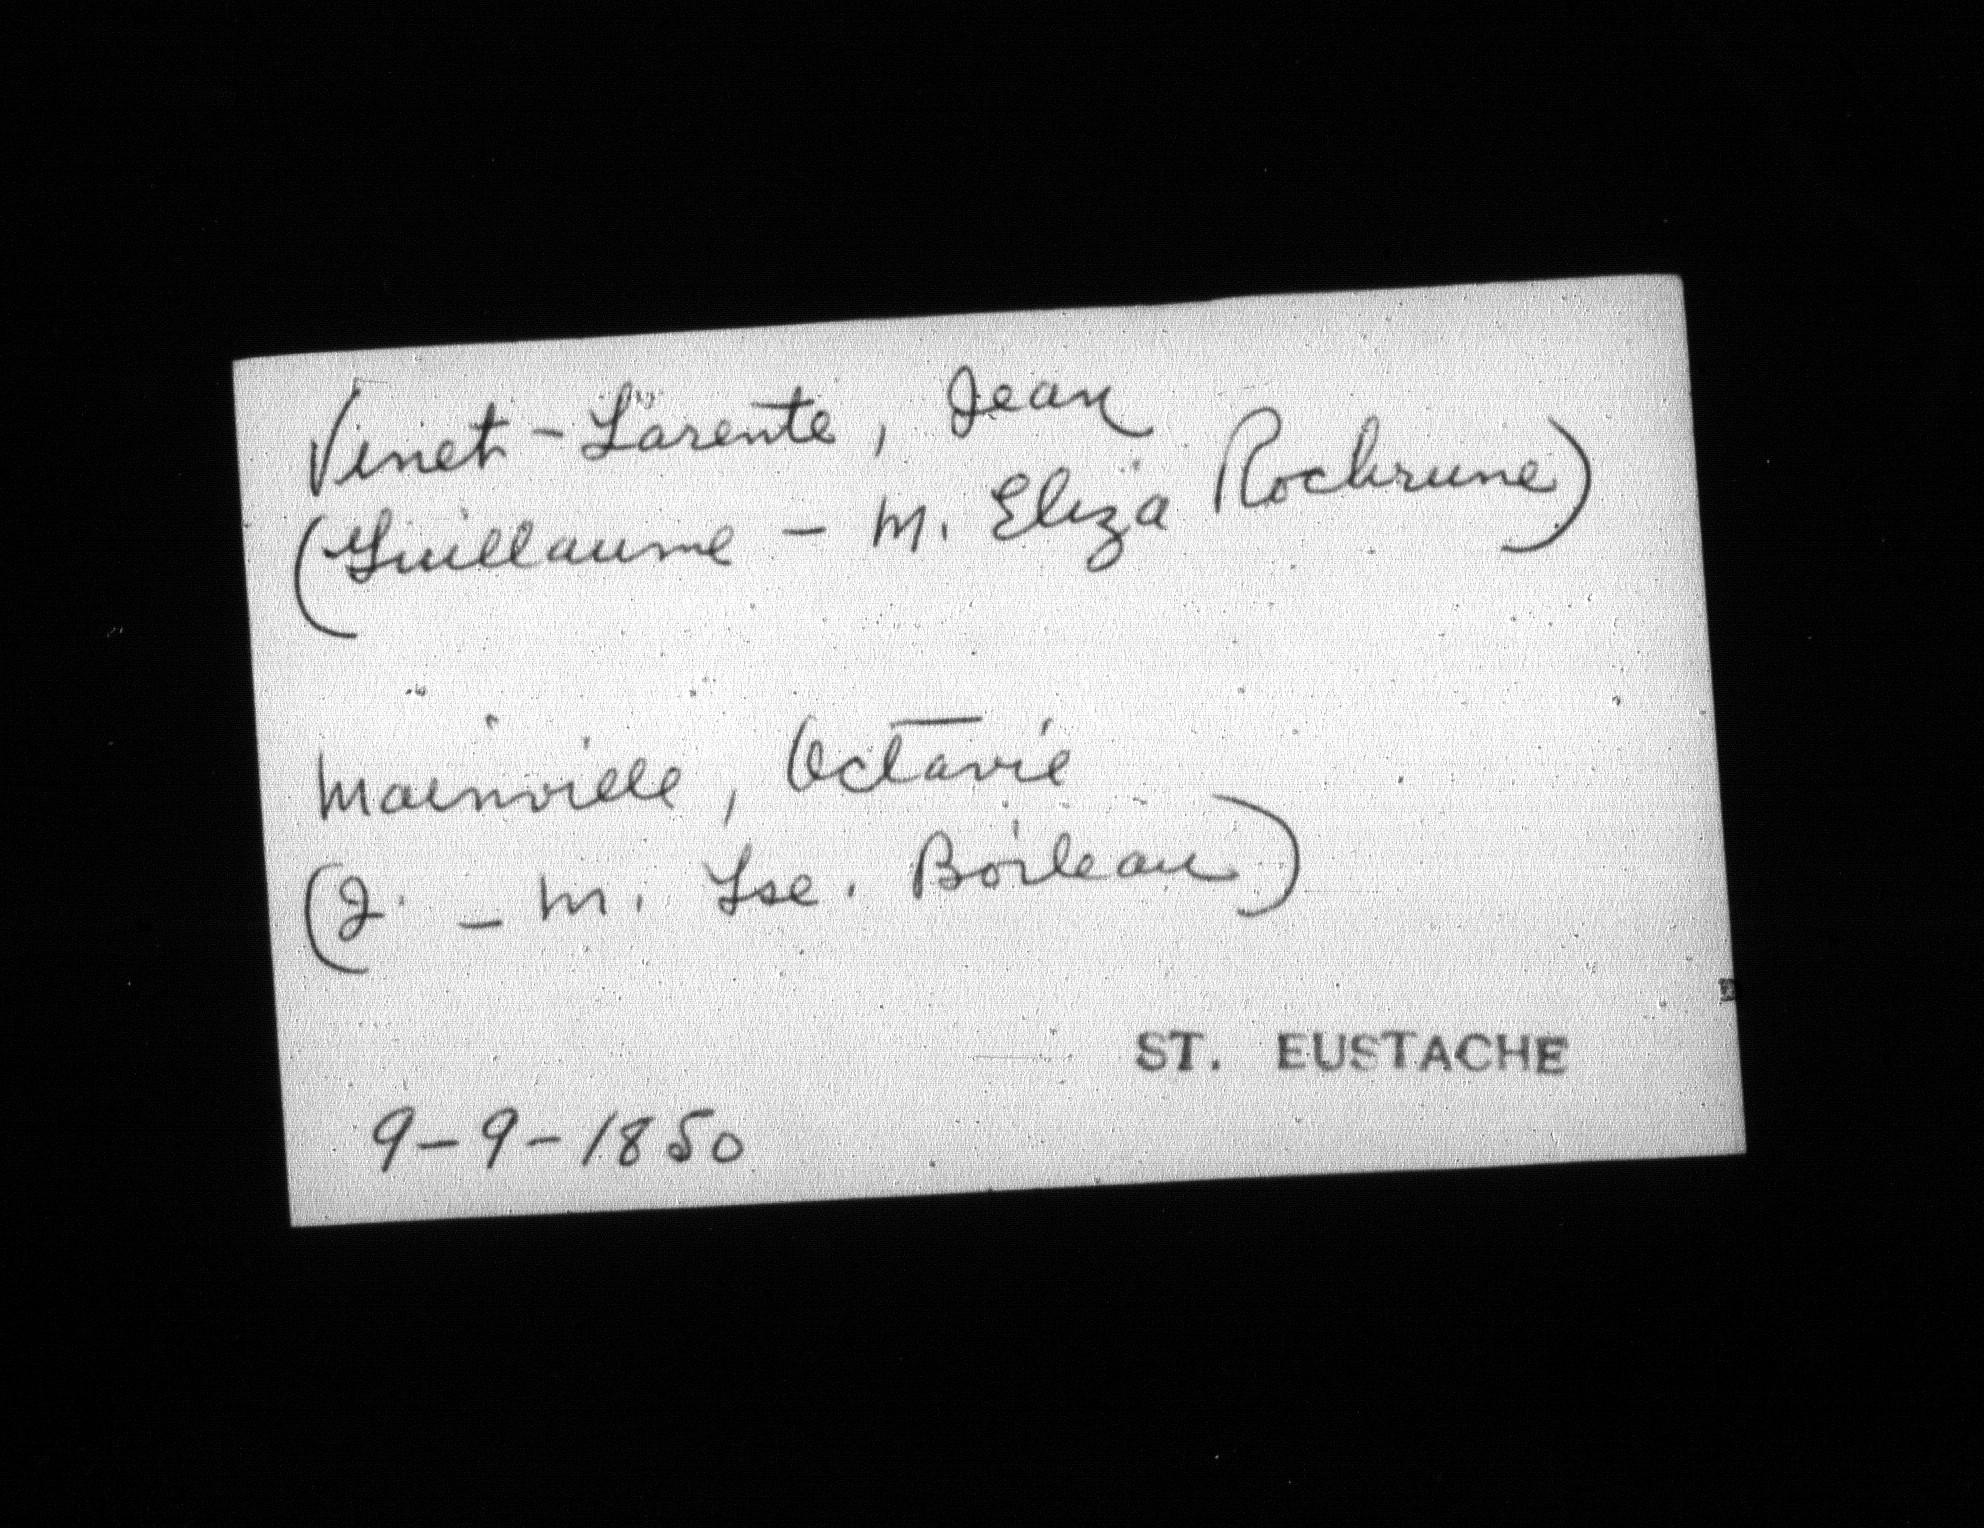 Vinet - Larente, Jean
(Guillaume - M. Eliza Rochrune)
Mainville, Octavie
(J. - M. Lse. Boileau)
ST. EUSTACHE
9-9-1850